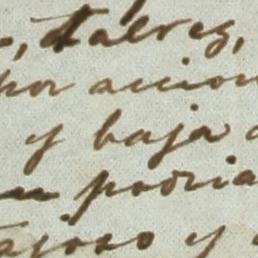 , talves,
por accion
y baja
podria
tajoso y